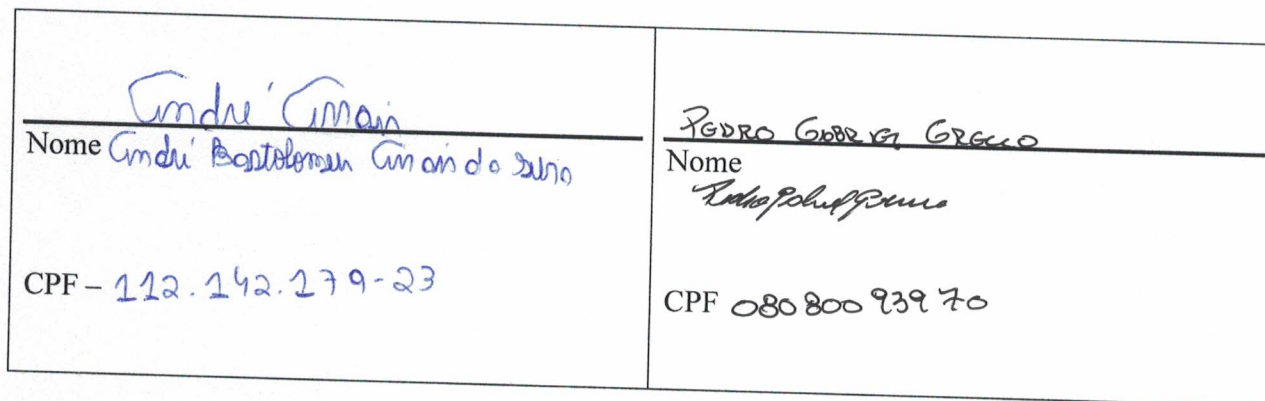 André Amain
Nome André Bartolomeu Amain da Silva
CPF – 112.142.179-23
PEDRO GABRIEL GRECCO
Nome
CPF 080 800 939 70